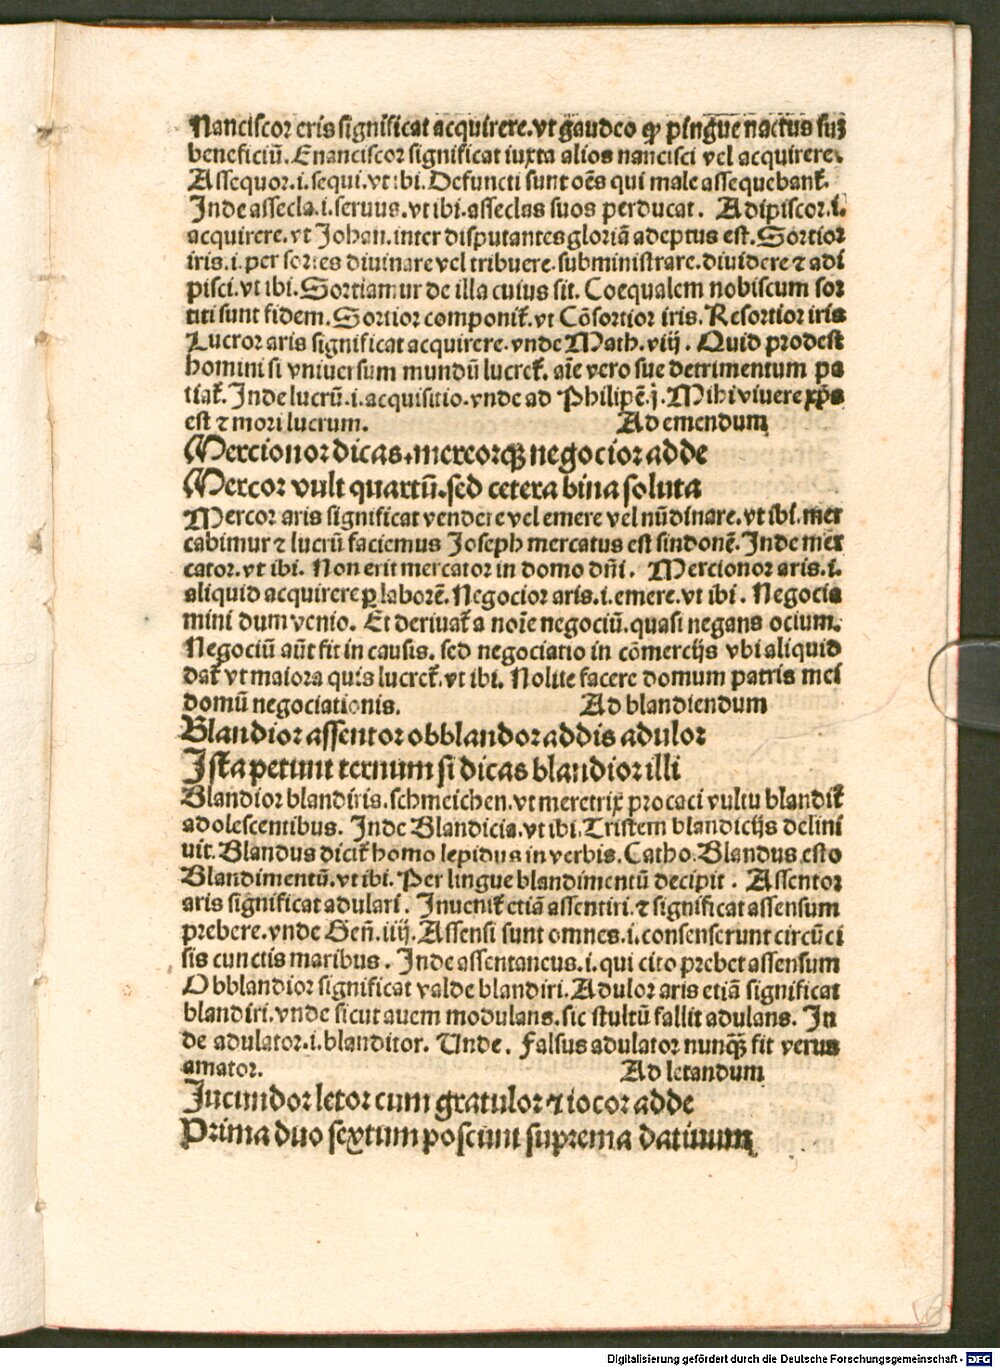 Nanciscor eris significat acquirere.vt gaudeo ꝙ pingue nactus suȝ
beneficiū. Enanciscor significat iuxta alios nancisci vel acquirere.
Assequor.i.sequi.vt ibi. Defuncti sunt oēs qui male assequebant᷑.
Inde assecla.i.seruus.vt ibi.asseclas suos perducat. Adipiscor.i.
acquirere.vt Johan.inter disputantes gloriā adeptus est. Sortior
iris.i.per sortes diuinare vel tribuere.subministrare.diuidere ⁊ adi
pisci.vt ibi. Sortiamur de illa cuius sit. Coequalem nobiscum sor
titi sunt fidem. Sortior componit᷑.vt Cōsortior iris. Resortior iris
Lucror aris significat acquirere.vnde Math.viij. Quid prodest
homini si vniuersum mundū lucret᷑. aīe vero sue detrimentum pa
tiat᷑. Inde lucrū.i.acquisitio.vnde ad Philipē.j. Mihi viuere xp̄s
est ⁊ mori lucrum. Ad emendum
Mercionor dicas.mercorqꝫ negocior adde
Mercor vult quartū.sed cetera bina soluta
Mercor aris significat vendere vel emere vel nūdinare.vt ibi.mer
cabimur ⁊ lucrū faciemus Joseph mercatus est sindonē. Inde mer
cator.vt ibi. Non erit mercator in domo dn̄i. Mercionor aris.i.
aliquid acquirere ꝑ laborē. Negocior aris.i.emere.vt ibi. Negocia
mini dum venio. Et deriuat᷑ a noīe negociū.quasi negans ocium.
Negociū aūt fit in causis. sed negociatio in cōmercijs vbi aliquid
dat᷑ vt maiora quis lucret᷑.vt ibi. Nolite facere domum patris mei
domū negociationis. Ad blandiendum
Blandior assentor obblandor addis adulor
Ista petunt ternum si dicas blandior illi
Blandior blandiris.schmeichen.vt meretrix procaci vultu blandit᷑
adolescentibus. Inde Blandicia.vt ibi. Tristem blandicijs delini
uit. Blandus dicit᷑ homo lepidus in verbis. Catho. Blandus esto
Blandimentū.vt ibi. Per lingue blandimentū decipit. Assentor
aris significat adulari. Inuenit᷑ etiā assentiri.⁊ significat assensum
prebere.vnde Gen̄.iiij. Assensi sunt omnes.i.consenserunt circūci
sis cunctis maribus. Inde assentaneus.i.qui cito prebet assensum
Obblandior significat valde blandiri. Adulor aris etiā significat
blandiri.vnde sicut auem modulans.sic stultū fallit adulans. In
de adulator.i.blanditor. Unde. Falsus adulator nunqꝫ fit verus
amator. Ad letandum
Jucundor letor cum gratulor ⁊ iocor adde
Prima duo sextum poscunt suprema datiuum
Digitalisierung gefördert durch die Deutsche Forschungsgemeinschaft - DFG